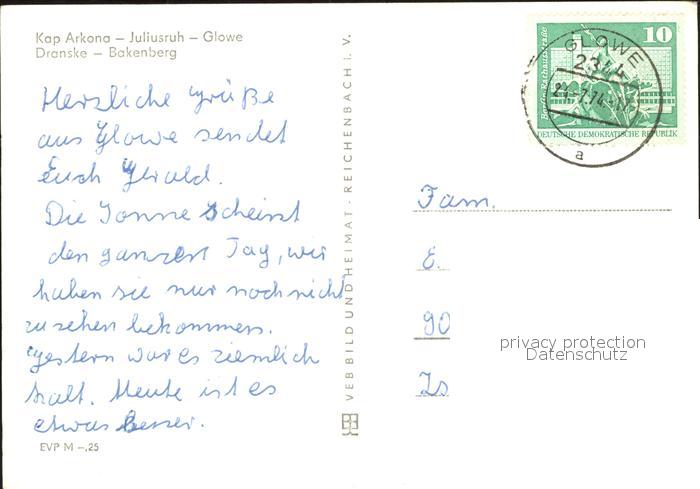 Kap Arkona – Juliusruh – Glowe
Dranske – Bakenberg
Herzliche Grüße
aus Glowe sendet
Euch Gerald.
Die Sonne scheint
den ganzen Tag, wir
haben sie nur noch nicht
zu sehen bekommen.
Gestern war es ziemlich
kalt. Heute ist es
etwas besser.
EVP M –,25
VEB BILD UND HEIMAT · REICHENBACH I. V.
10
Berlin, Rathausstraße
DEUTSCHE DEMOKRATISCHE REPUBLIK
GLOWE
a
Fam.
E.
90
privacy protection
Datenschutz